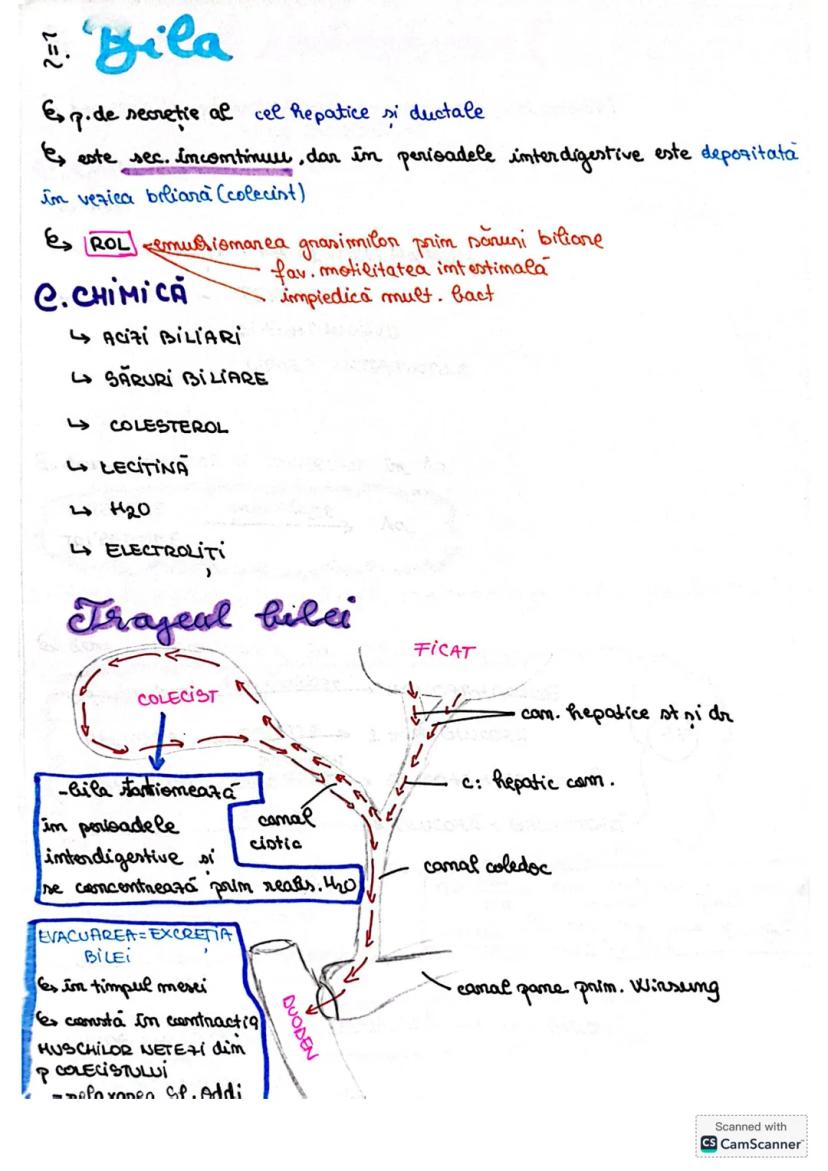 II. Bila
↳ p. de secreție al cel hepatice și ductale
↳ este sec. încontinuu, dar în perioadele interdigestive este depozitată
în vezica biliară (colecist)
↳ ROL emulsionarea grasimilor prim săruri biliare
fav. motilitatea intestinală
împiedică mult. bact
C. CHIMICĂ
↳ ACIZI BILIARI
↳ SĂRURI BILIARE
↳ COLESTEROL
↳ LECITINĂ
↳ H2O
↳ ELECTROLIȚI
Traseul bilei
FICAT
COLECIST
can. hepatice st și dr
- bila staționează
în perioadele
interdigestive și
se concentrează prin reabs. H2O
canal
cistic
c: hepatic com.
canal coledoc
EVACUAREA = EXCREȚIA
BILEI
↳ în timpul mesei
↳ constă în contracția
MUSCHILOR NETEZI din
p COLECISTULUI
- relaxarea Sf. Oddi
DUODEN
canal panc prim. Wirsung
Scanned with
CS CamScanner